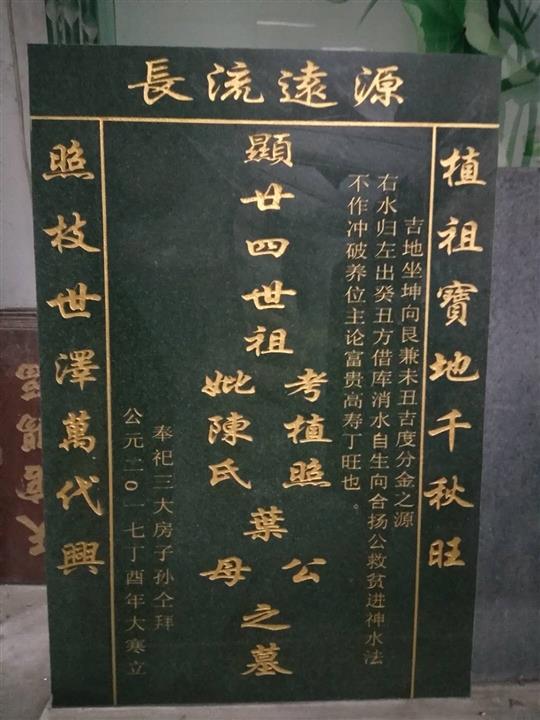 源遠流長
植祖寶地千秋旺
吉地坐坤向艮兼未丑吉度分金之源
右水归左出癸丑方借库消水自生向合扬公救贫进神水法
不作冲破养位主论富贵高寿丁旺也。
顯廿四世祖
考植照
妣陳氏
葉
公
母
之墓
奉祀三大房子孙仝拜
公元二0一七丁酉年大寒立
照枝世澤萬代興